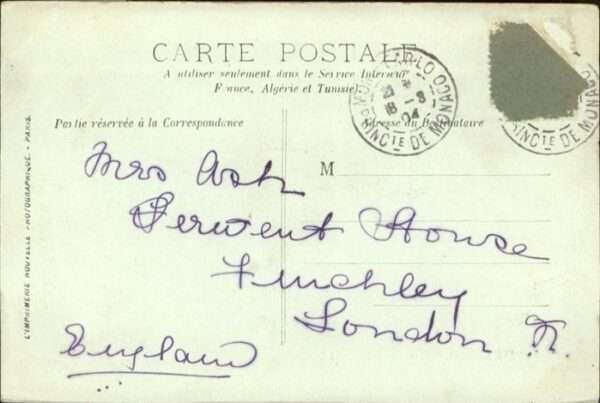 CARTE POSTALE
A utiliser seulement dans le Service Intérieur
France, Algérie et Tunisie).
Partie réservée à la Correspondance
Adresse du Destinataire
MONTE-CARLO
21
18 - 3
04
PRINCTE DE MONACO
PRINCTE DE MONACO
M
Mrs Ash
Derwent House
Finchley
London N.
England
L'IMPRIMERIE NOUVELLE PHOTOGRAPHIQUE - PARIS